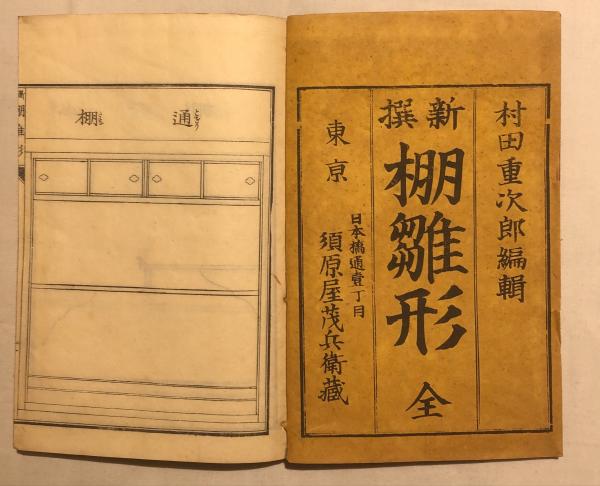 村田重次郎編輯
新撰
棚雛形 全
東亰
日本橋通壹丁目
須原屋茂兵衛藏
通棚
棚雛形